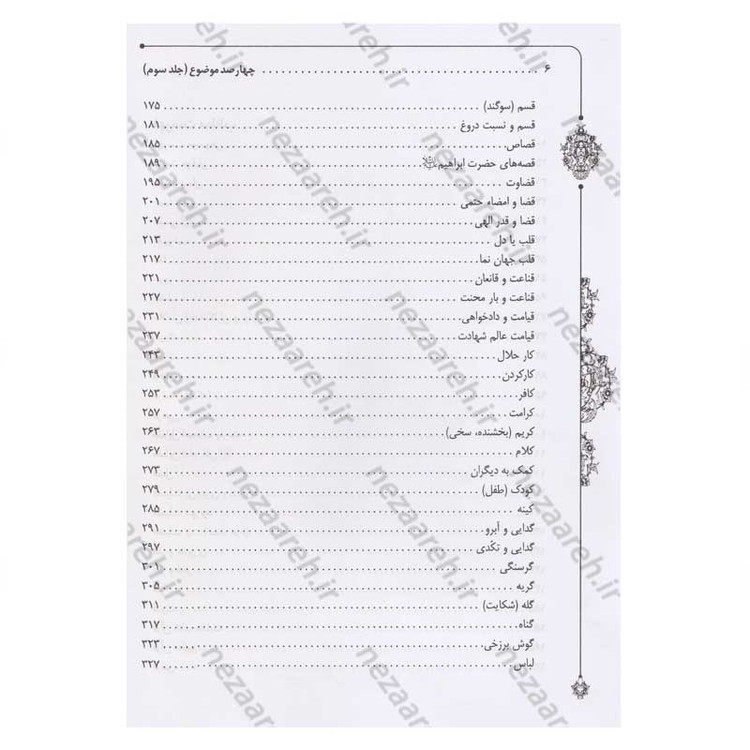 ۶ ........ چهارصد موضوع (جلد سوم)
قسم (سوگند) ........ ۱۷۵
قسم و نسبت دروغ ........ ۱۸۱
قصاص ........ ۱۸۵
قصه‌های حضرت ابراهیم ........ ۱۸۹
قضاوت ........ ۱۹۵
قضا و امضاء حتمی ........ ۲۰۱
قضا و قدر الهی ........ ۲۰۷
قلب یا دل ........ ۲۱۳
قلب جهان نما ........ ۲۱۷
قناعت و قانعان ........ ۲۲۱
قناعت و بار محنت ........ ۲۲۷
قیامت و دادخواهی ........ ۲۳۱
قیامت عالم شهادت ........ ۲۳۷
کار حلال ........ ۲۴۳
کارکردن ........ ۲۴۹
کافر ........ ۲۵۳
کرامت ........ ۲۵۷
کریم (بخشنده، سخی) ........ ۲۶۳
کلام ........ ۲۶۷
کمک به دیگران ........ ۲۷۳
کودک (طفل) ........ ۲۷۹
کینه ........ ۲۸۵
گدایی و آبرو ........ ۲۹۱
گدایی و تکدّی ........ ۲۹۷
گرسنگی ........ ۳۰۱
گریه ........ ۳۰۵
گله (شکایت) ........ ۳۱۱
گناه ........ ۳۱۷
گوش برزخی ........ ۳۲۳
لباس ........ ۳۲۷
nezaareh.ir